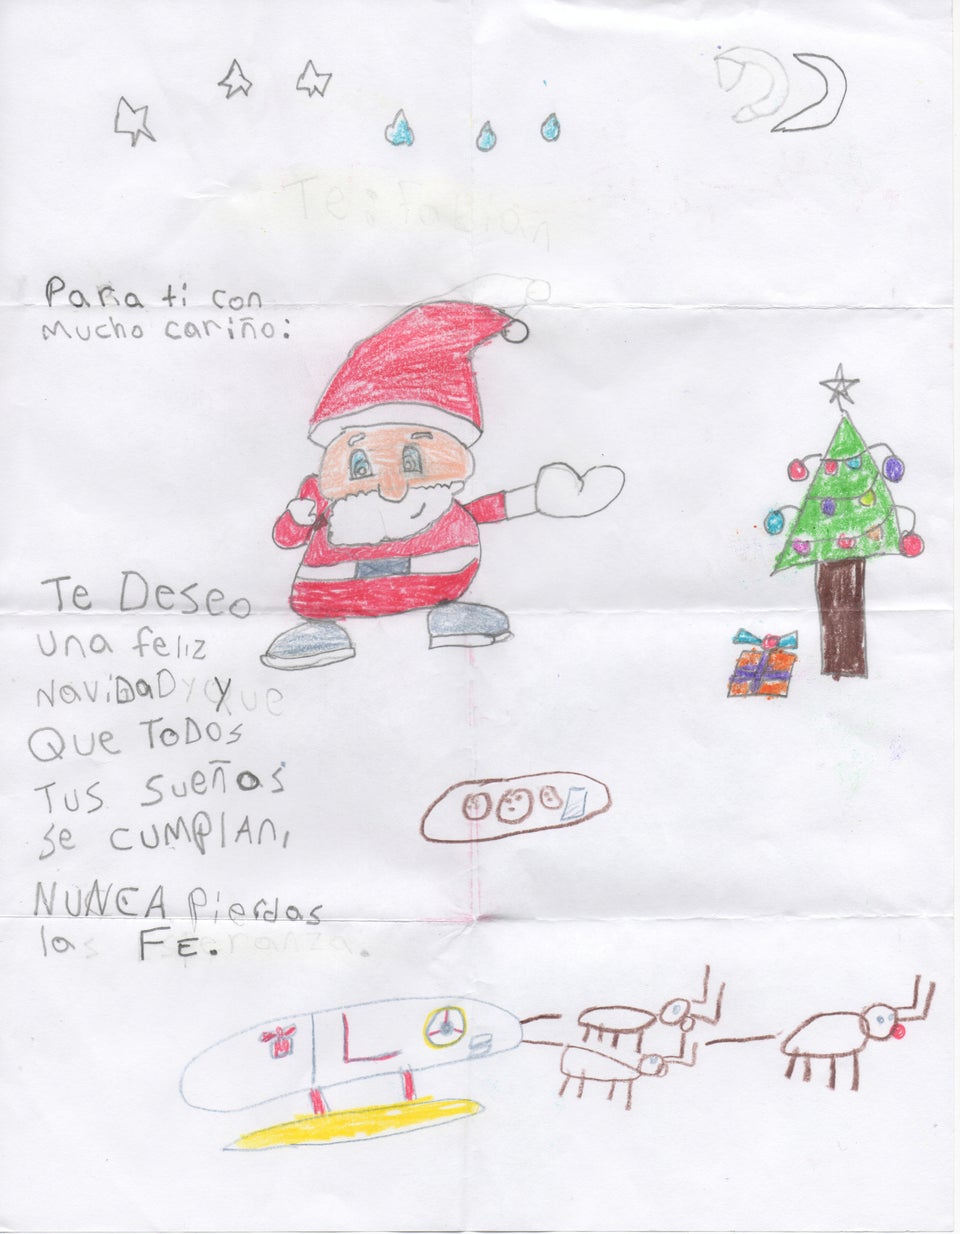 Para ti con
mucho cariño:
Te Deseo
una feliz
NaviDaD y
Que ToDos
Tus sueños
se cumplan,
NUNCA pierdas
la Fe.